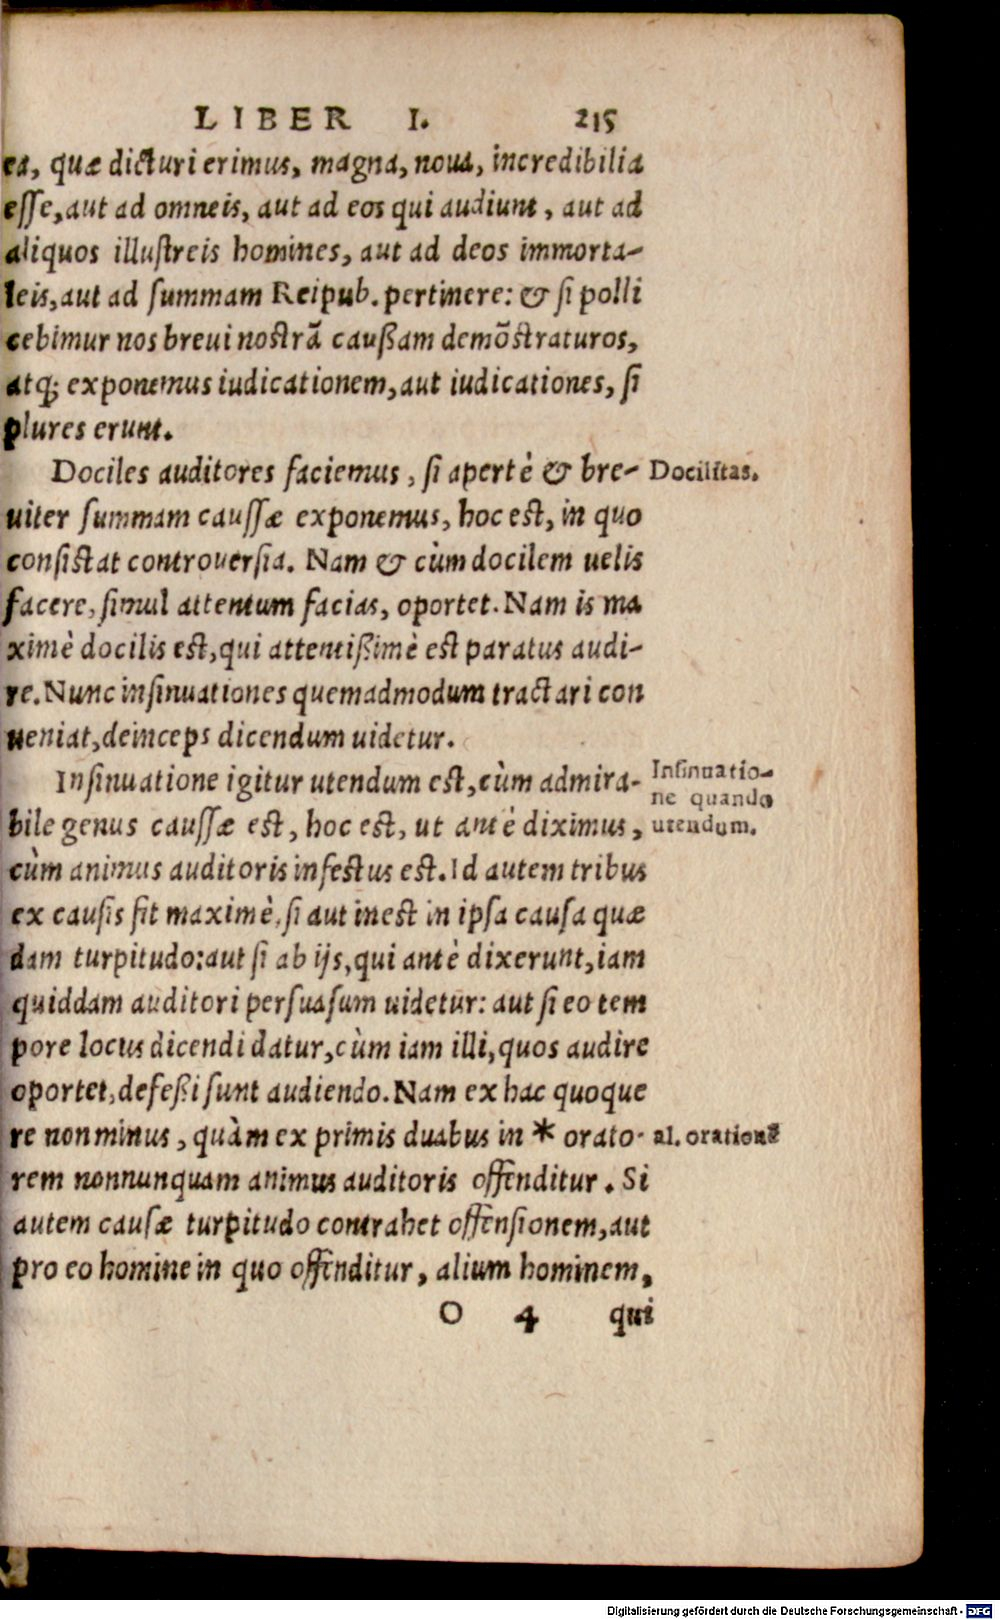 LIBER I. 215
ea, quæ dicturi erimus, magna, noua, incredibilia
esse, aut ad omneis, aut ad eos qui audiunt, aut ad
aliquos illustreis homines, aut ad deos immorta-
leis, aut ad summam Reipub. pertinere: & si polli
cebimur nos breui nostrã caußam demõstraturos,
atq; exponemus iudicationem, aut iudicationes, si
plures erunt.
Dociles auditores faciemus, si apertè & bre-
Docilitas.
uiter summam caussæ exponemus, hoc est, in quo
consistat controuersia. Nam & cùm docilem uelis
facere, simul attentum facias, oportet. Nam is ma
ximè docilis est, qui attentißimè est paratus audi-
re. Nunc insinuationes quemadmodum tractari con
ueniat, deinceps dicendum uidetur.
Insinuatione igitur utendum est, cùm admira-
Insinuatio-
ne quando
utendum.
bile genus caussæ est, hoc est, ut antè diximus,
cùm animus auditoris infestus est. Id autem tribus
ex causis fit maximè, si aut inest in ipsa causa quæ
dam turpitudo: aut si ab ijs, qui antè dixerunt, iam
quiddam auditori persuasum uidetur: aut si eo tem
pore locus dicendi datur, cùm iam illi, quos audire
oportet, defeßi sunt audiendo. Nam ex hac quoque
re non minus, quàm ex primis duabus in * orato-
al. orationẽ
rem nonnunquam animus auditoris offenditur. Si
autem causæ turpitudo contrahet offensionem, aut
pro eo homine in quo offenditur, alium hominem,
O 4 qui
Digitalisierung gefördert durch die Deutsche Forschungsgemeinschaft - DFG